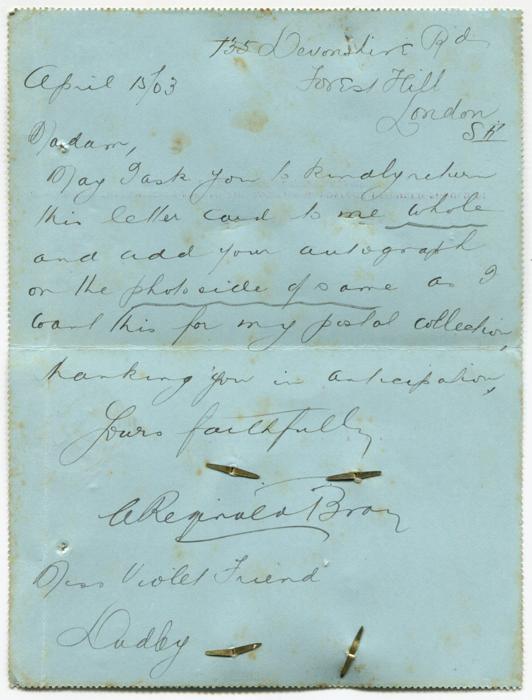 135 Devonshire Rd
Forest Hill
April 15/03
London
SE
Madam,
May I ask you to kindly return
this letter card to me whole
and add your autograph
on the photo side of same as I
want this for my postal collection,
thanking you in anticipation,
Yours faithfully
W Reginald Bray
Miss Violet Friend
Dudley